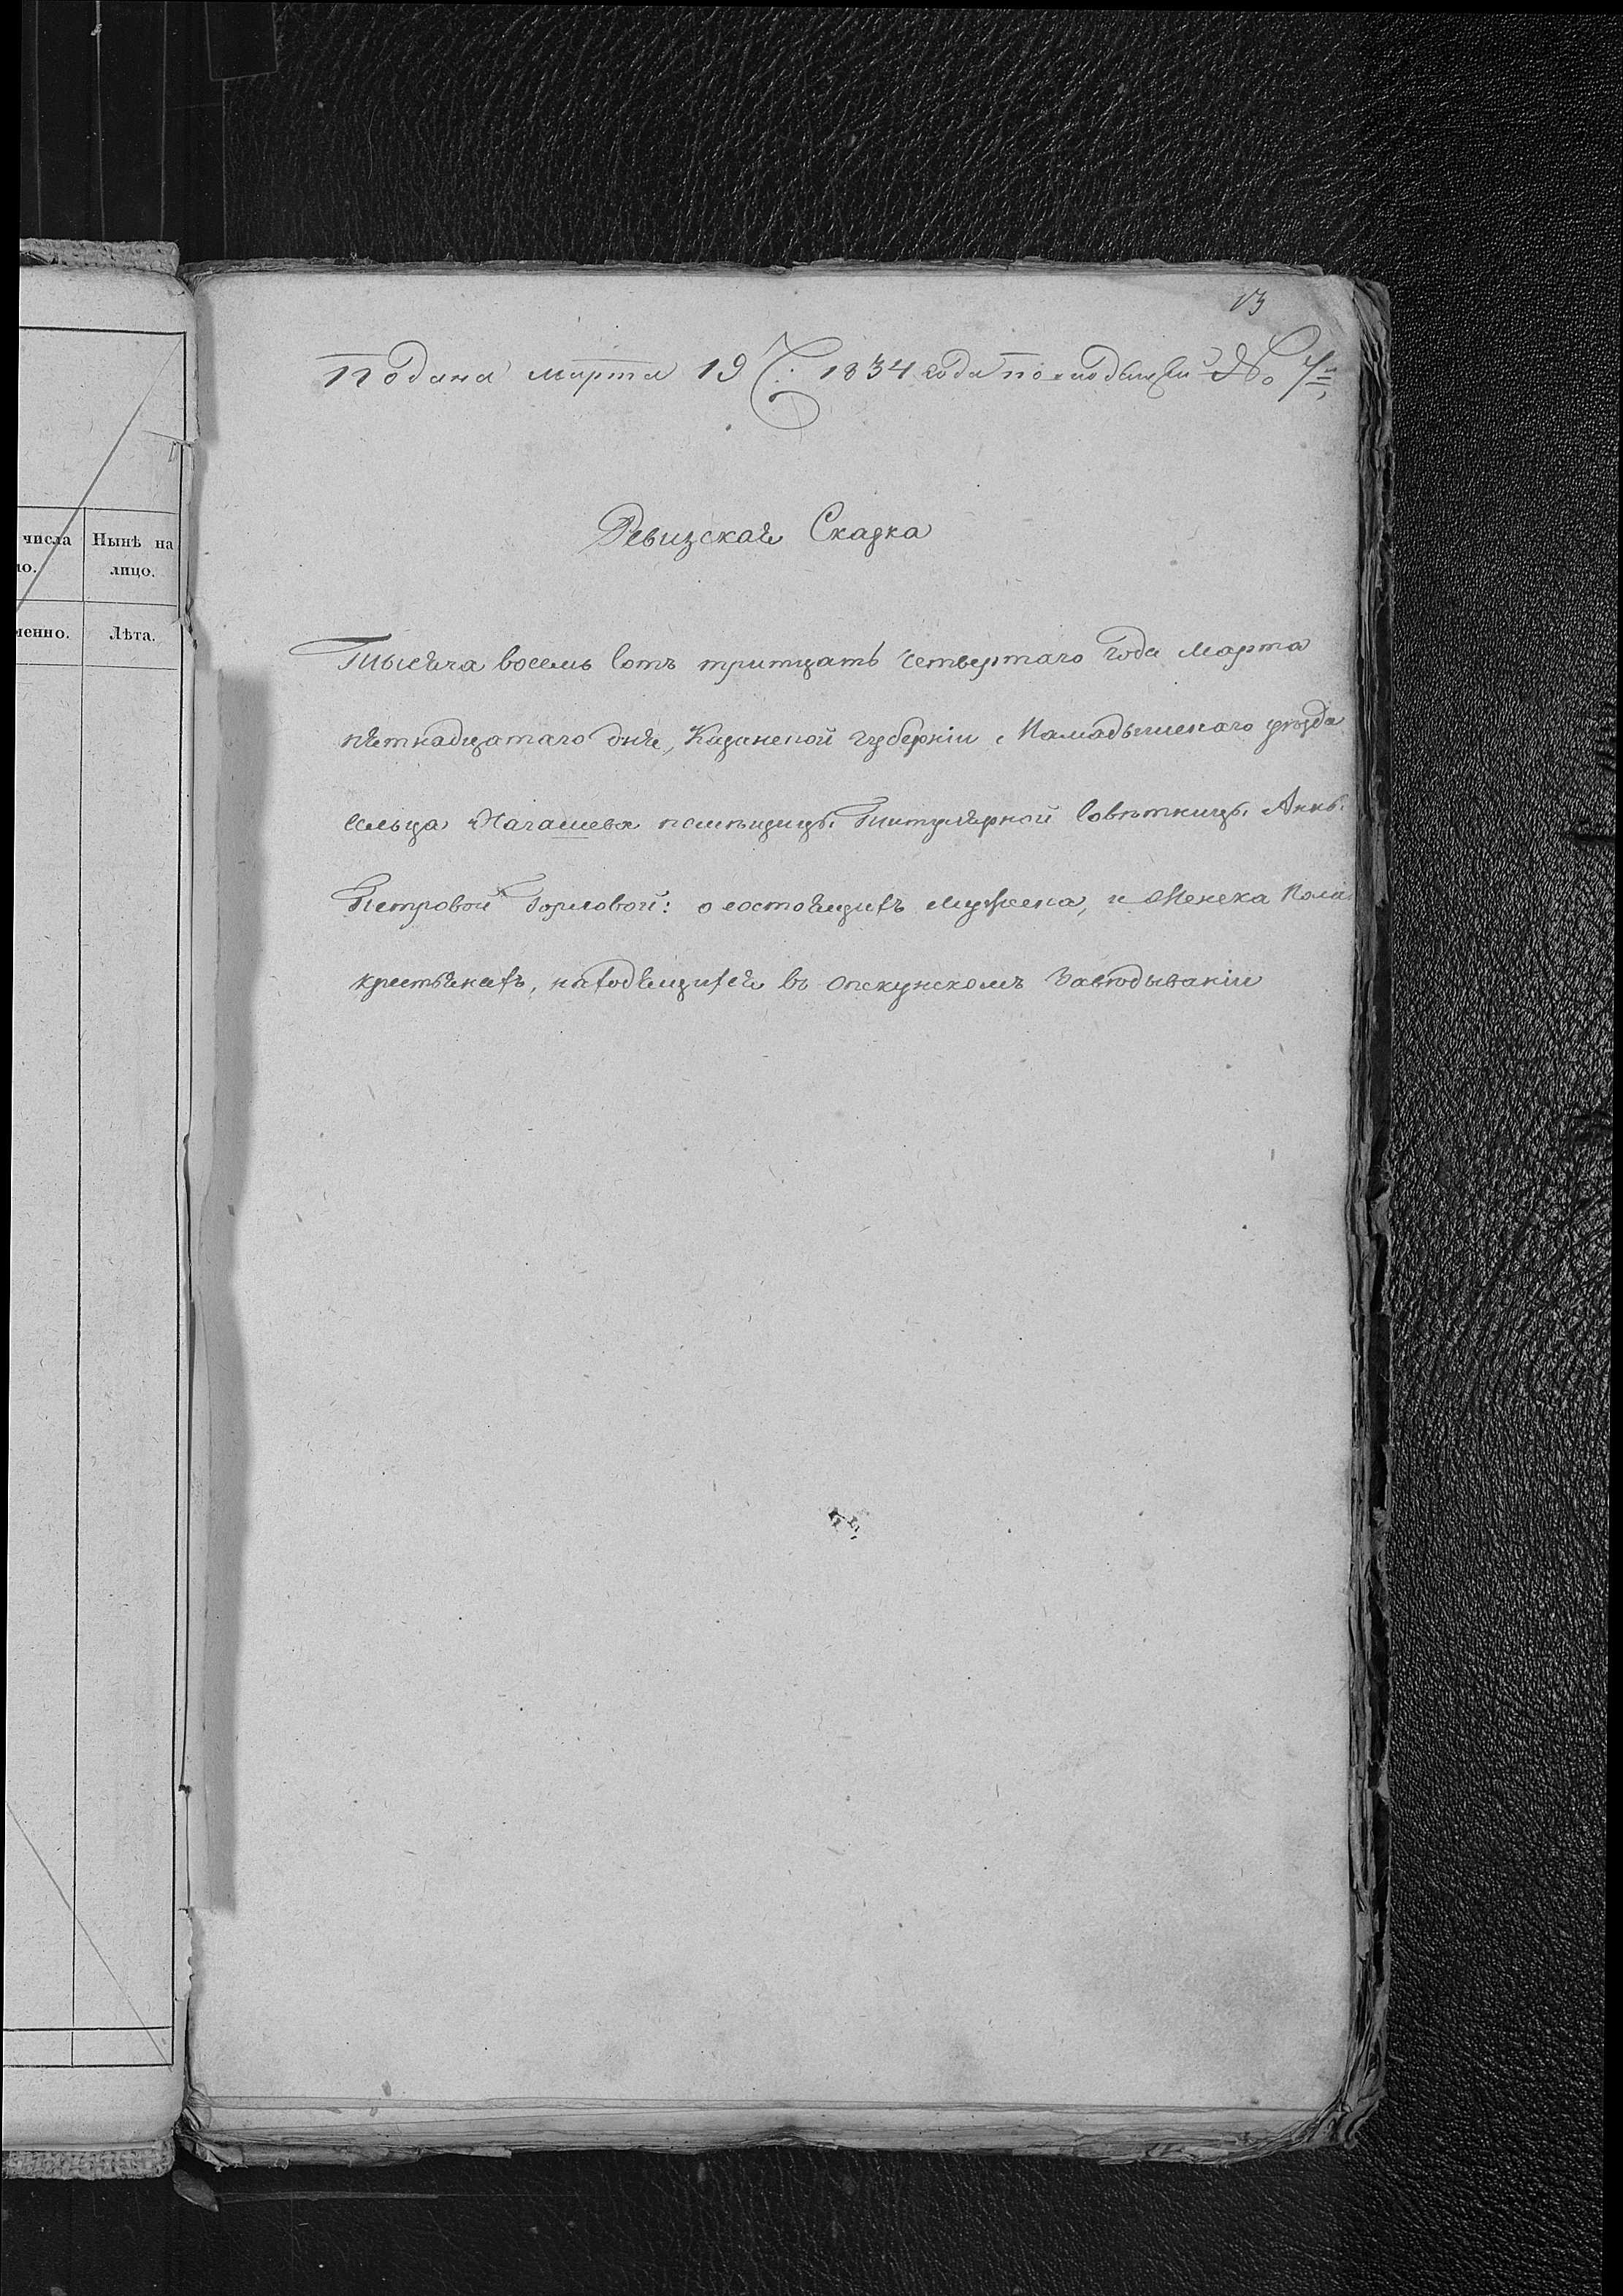 13
Подана марта 19 Ч: 1834 года No 7=
числа
Нынѣ на
но.
лицо.
менно.
Лѣта.
Ревизская Сказка
Тысяча восемь сотъ тритцать четвертаго года марта
пятнадцатаго дня, Казанской губерніи, Мамадышскаго уѣзда
сельца помѣщицы Титулярной совѣтницы Анны
Петровой Горловой: о состоящихъ мужеска, и женска пола
крестьянахъ, находящихся въ опекунскомъ завѣдываніи